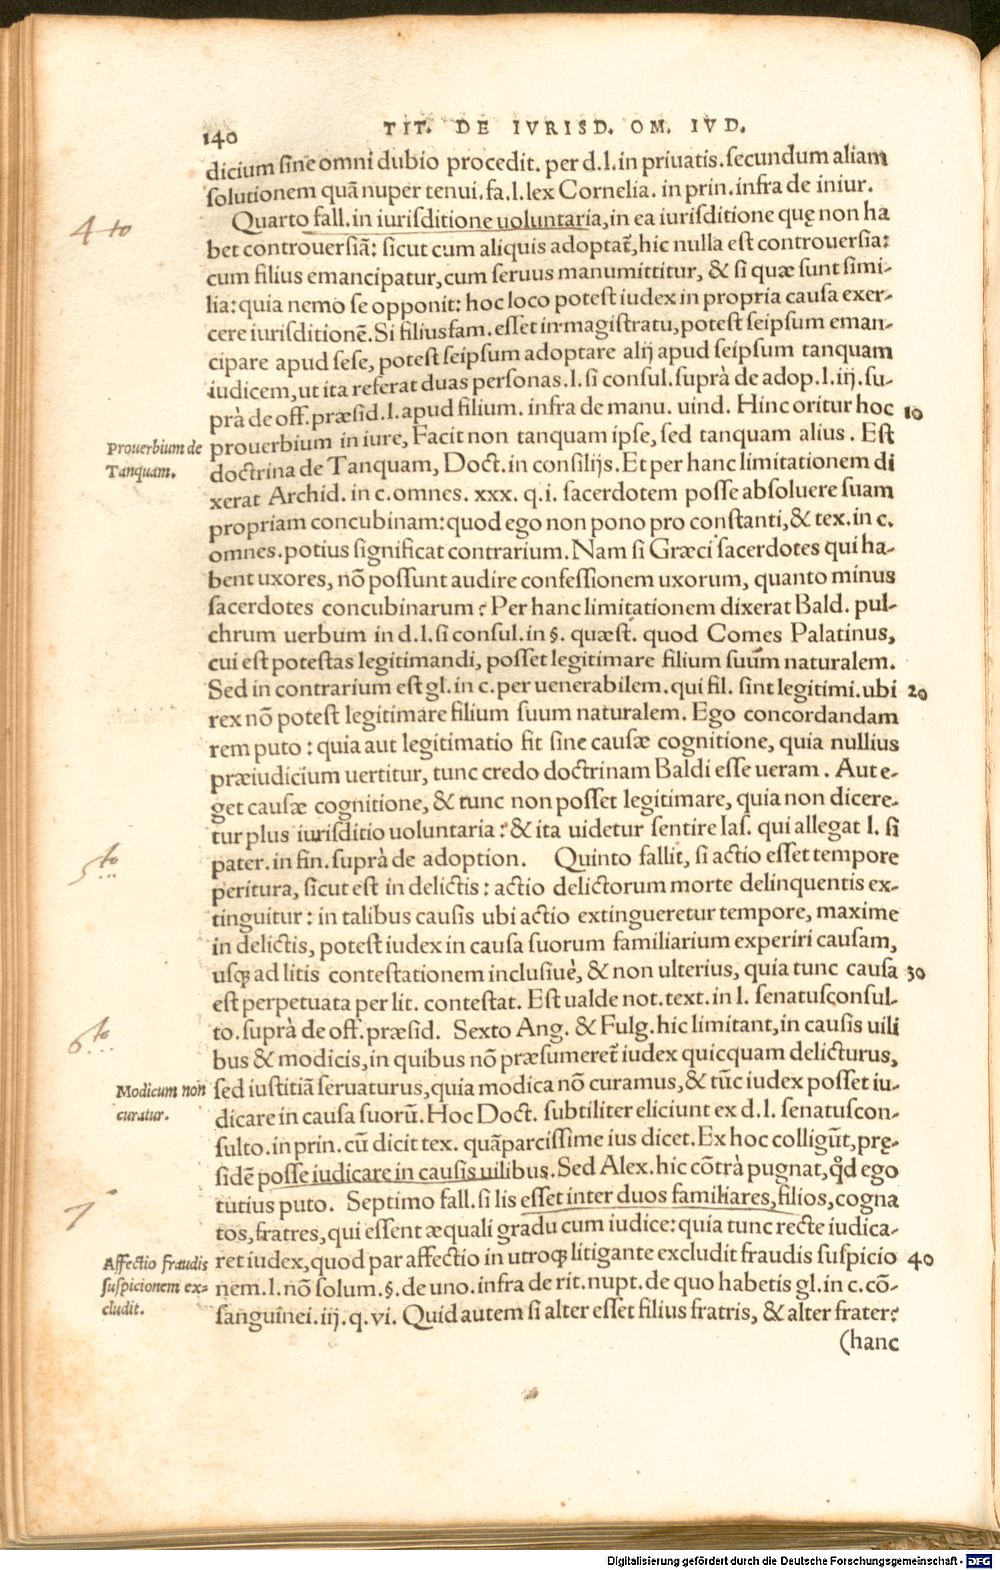 140
TIT. DE IVRISD. OM. IVD.
dicium sine omni dubio procedit. per d.l.in priuatis.secundum aliam
solutionem quã nuper tenui. fa.l.lex Cornelia. in prin.infra de iniur.
4 to
Quarto fall.in iurisditione uoluntaria,in ea iurisditione quę non ha
bet controuersiã: sicut cum aliquis adoptat̃,hic nulla est controuersia:
cum filius emancipatur,cum seruus manumittitur, & si quæ sunt simi-
lia:quia nemo se opponit: hoc loco potest iudex in propria causa exer-
cere iurisditionẽ.Si filiusfam.esset in magistratu,potest seipsum eman-
cipare apud sese, potest seipsum adoptare alij apud seipsum tanquam
iudicem,ut ita referat duas personas.l.si consul.suprà de adop.l.iij.su-
prà de off.præsid.l.apud filium. infra de manu. uind. Hinc oritur hoc 10
Prouerbium de
Tanquam.
prouerbium in iure, Facit non tanquam ipse, sed tanquam alius. Est
doctrina de Tanquam, Doct.in consilijs.Et per hanc limitationem di
xerat Archid. in c.omnes. xxx. q.i. sacerdotem posse absoluere suam
propriam concubinam:quod ego non pono pro constanti,& tex.in c.
omnes.potius significat contrarium. Nam si Græci sacerdotes qui ha-
bent uxores, nõ possunt audire confessionem uxorum, quanto minus
sacerdotes concubinarum? Per hanc limitationem dixerat Bald. pul-
chrum uerbum in d.l.si consul.in §. quæst. quod Comes Palatinus,
cui est potestas legitimandi, posset legitimare filium suum naturalem.
Sed in contrarium est gl.in c.per uenerabilem.qui fil. sint legitimi.ubi 20
rex nõ potest legitimare filium suum naturalem. Ego concordandam
rem puto: quia aut legitimatio fit sine causæ cognitione, quia nullius
præiudicium uertitur, tunc credo doctrinam Baldi esse ueram. Aut e-
get causæ cognitione, & tunc non posset legitimare, quia non dicere-
tur plus iurisditio uoluntaria: & ita uidetur sentire Ias. qui allegat l. si
5 to
pater.in fin.suprà de adoption. Quinto fallit, si actio esset tempore
peritura, sicut est in delictis: actio delictorum morte delinquentis ex-
tinguitur: in talibus causis ubi actio extingueretur tempore, maxime
in delictis, potest iudex in causa suorum familiarium experiri causam,
usq; ad litis contestationem inclusiuè, & non ulterius, quia tunc causa 30
est perpetuata per lit. contestat. Est ualde not.text.in l. senatusconsul-
6 to
to.suprà de off.præsid. Sexto Ang. & Fulg.hic limitant,in causis uili
bus & modicis,in quibus nõ præsumeret̃ iudex quicquam delicturus,
Modicum non
curatur.
sed iustitiã seruaturus,quia modica nõ curamus,& tũc iudex posset iu-
dicare in causa suorũ. Hoc Doct. subtiliter eliciunt ex d.l. senatuscon-
sulto.in prin. cũ dicit tex. quãparcissime ius dicet.Ex hoc colligũt,prę-
sidẽ posse iudicare in causis uilibus.Sed Alex.hic cõtrà pugnat,qd̃ ego
7°
tutius puto. Septimo fall.si lis esset inter duos familiares,filios,cogna
tos,fratres,qui essent æquali gradu cum iudice:quia tunc recte iudica-
Affectio fraudis
suspicionem ex-
cludit.
ret iudex,quod par affectio in utroq; litigante excludit fraudis suspicio 40
nem.l.nõ solum.§.de uno.infra de rit.nupt.de quo habetis gl.in c.cõ-
sanguinei.iij.q.vi. Quid autem si alter esset filius fratris, & alter frater?
(hanc
Digitalisierung gefördert durch die Deutsche Forschungsgemeinschaft - DFG